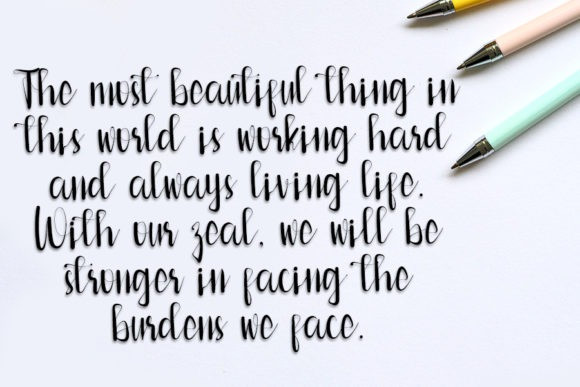 The most beautiful thing in
this world is working hard
and always living life.
With our zeal, we will be
stronger in facing the
burdens we face.